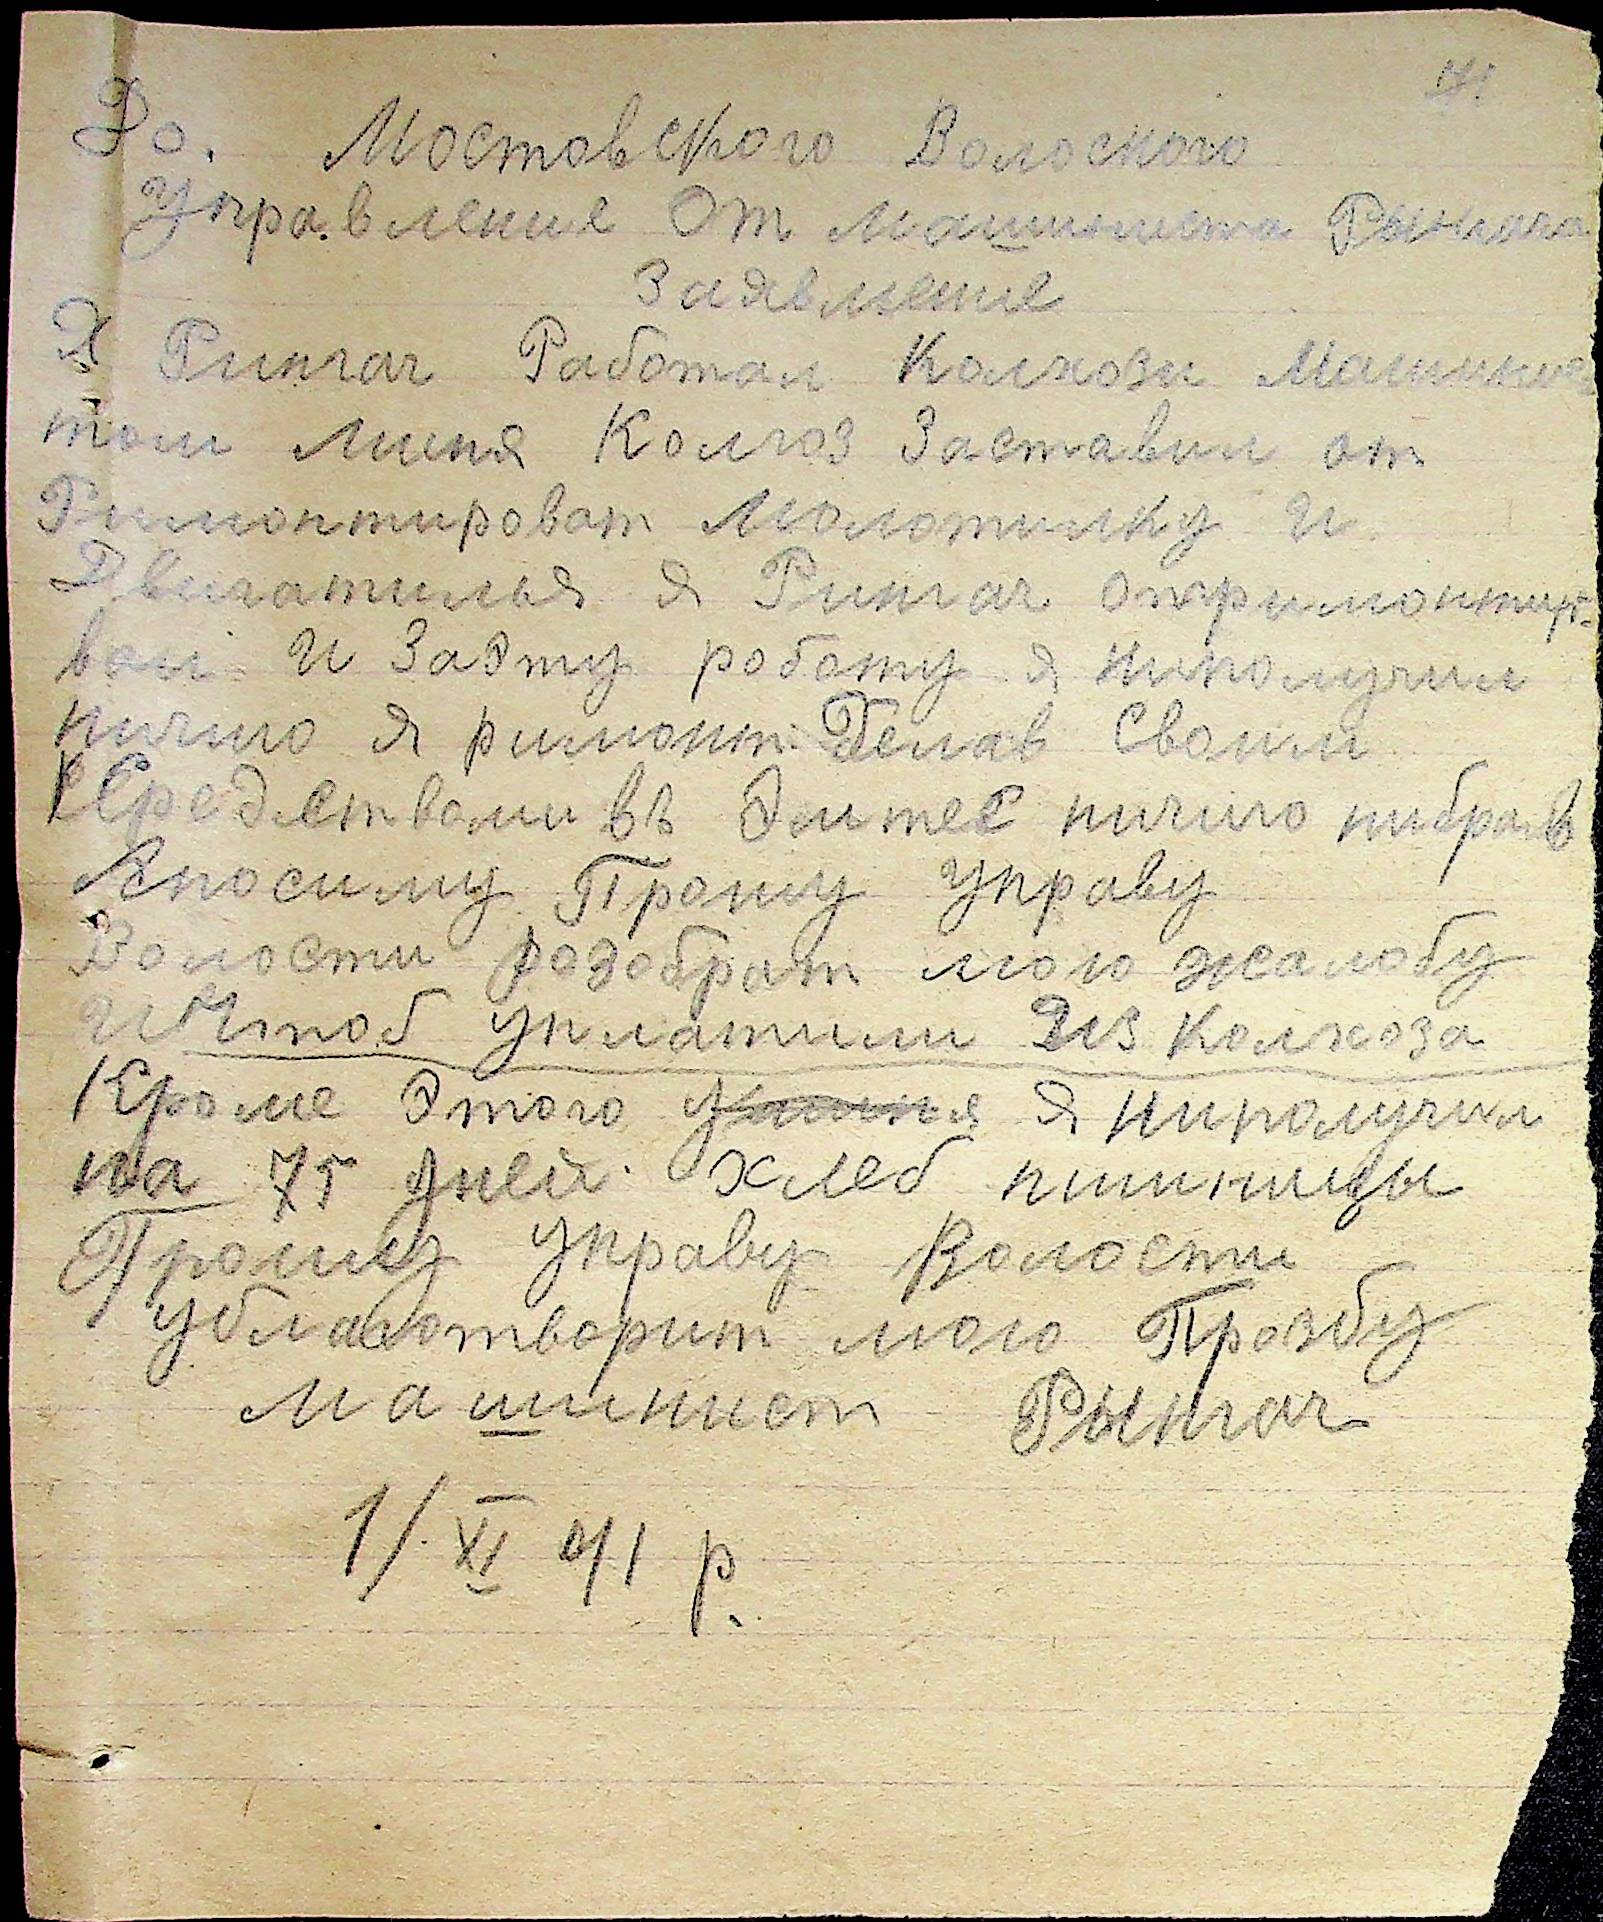 71
До. Мостовского Волоского
Управление От Машиниста Рынгача
Заявление
Я Рингач Работал Колхози Машинис
том Миня Колгоз Заставил от
Римонтироват Молотилку и
Двигатилья я Рингач отримонтиро-
вал и Заэту роботу я ниполучил
ничиго я римонт Делав Своим
Средствами въ Эмтес ничиго нибрав
Апосиму Прошу Управу
Волости розобрат мою жалобу
ичтоб уплатили из Колхоза
Кроме Этого я ниполучил
на 75 дней хлеб пшиницы
Прошу Управу Волости
Ублаготворит мою Прозбу
Машинист Рынгач
1/XI 41 р.